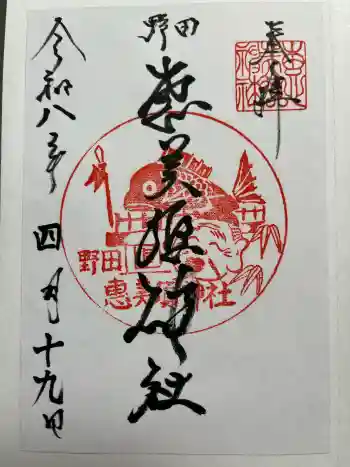 奉拝
野田
恵美須神社
令和八年
四月十九日
野田
恵美須神社